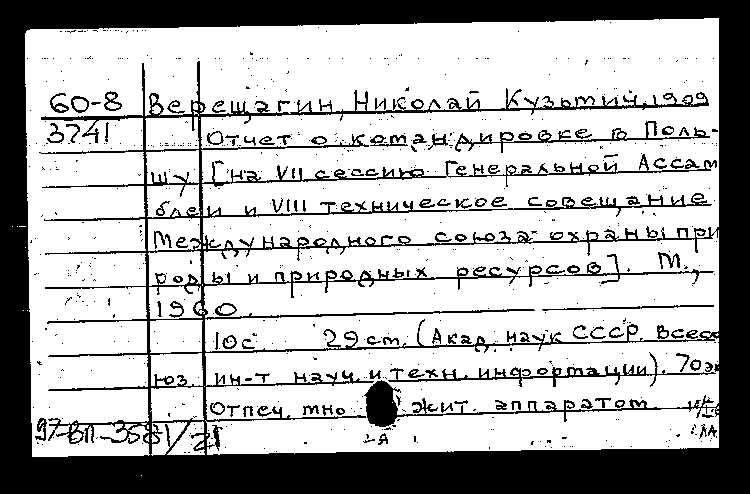 60-8 Верещагин, Николай Кузьмич, 1909
3741 Отчет о командировке в Поль-
шу [на VII сессию Генеральной Ассам
блеи и VIII техническое совещание
Международного союза охраны при
роды и природных ресурсов]. М.,
1960.
10с 29 см. (Акад. наук СССР. Всесо
юз. ин-т науч. и техн. информации). 70 эк
Отпеч. мно жит. аппаратом
97-ВП-3581/21